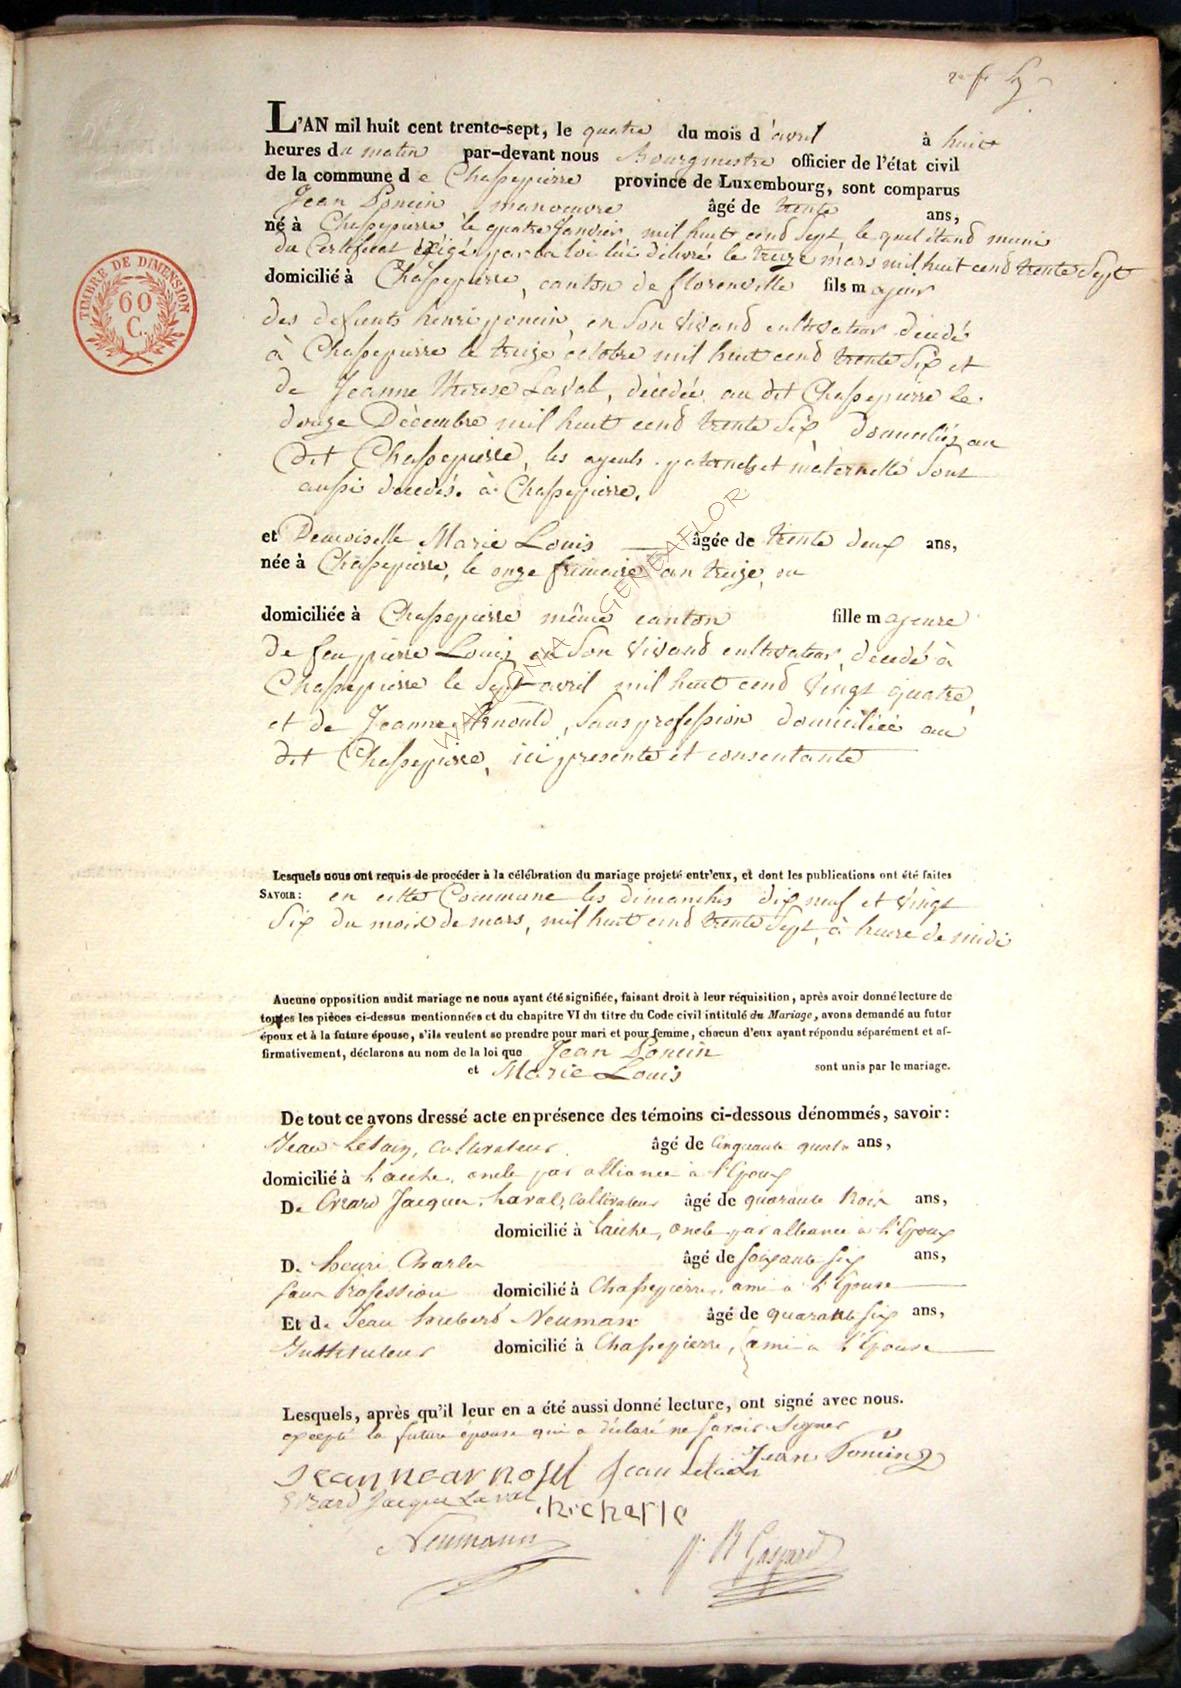 L'AN mil huit cent trente-sept, le quatre du mois d'avril à huit
heures du matin par-devant nous Bourgmestre officier de l'état civil
de la commune de Chassepierre province de Luxembourg, sont comparus
Jean Poncin manoeuvre âgé de trente ans,
né à Chassepierre le quatre Janvier mil huit cend Sept le quel étand muni
du Certificat exigé par la loi lui délivré le treize mars mil huit cend trente Sept
domicilié à Chassepierre, canton de florenville fils majeur
des defunts henri poncin, en Son Vivand cultivateur décédé
à Chassepierre le treize octobre mil huit cend trente Six et
de Jeanne Therese Laval, décédée au dit Chassepierre le
douze Décembre mil huit cend trente Six, domiciliés au
dit Chassepierre, les ayeuls paternels et maternelle Sont
aussi décédés à Chassepierre.
et Demoiselle Marie Louis âgée de trente deux ans,
née à Chassepierre, le onze frimaire an treize, ou
domiciliée à Chassepierre même canton fille majeure
de feu pierre Louis en Son Vivand cultivateur, décédé à
Chassepierre le Sept avril mil huit cend Vingt quatre,
et de Jeanne Arnould, Sans profession domiciliée au
dit Chassepierre, ici presente et consentante
Lesquels nous ont requis de procéder à la célébration du mariage projeté entr'eux, et dont les publications ont été faites
SAVOIR: en cette Commune les dimanches dix neuf et Vingt
Six du mois de mars, mil huit cend trente Sept, à heure de midi
Aucune opposition audit mariage ne nous ayant été signifiée, faisant droit à leur réquisition, après avoir donné lecture de
toutes les pièces ci-dessus mentionnées et du chapitre VI du titre du Code civil intitulé du Mariage, avons demandé au futur
époux et à la future épouse, s'ils veulent se prendre pour mari et pour femme, chacun d'eux ayant répondu séparément et af-
firmativement, déclarons au nom de la loi que Jean Poncin
et Marie Louis sont unis par le mariage.
De tout ce avons dressé acte en présence des témoins ci-dessous dénommés, savoir:
Jean cultivateur âgé de Cinquante quatre ans,
domicilié à Laiche, oncle par alliance à l'Epoux
De Erard Jacques Laval, Cultivateur âgé de quarante trois ans,
domicilié à Laiche, oncle par alliance à l'Epoux
D. henri Charles âgé de Soixante Six ans,
Sans Profession domicilié à Chassepierre, ami à l'Epouse
Et de Jean hubert Neuman âgé de quarante Six ans,
Instituteur domicilié à Chassepierre, ami à l'Epouse
Lesquels, après qu'il leur en a été aussi donné lecture, ont signé avec nous.
excepté la future épouse qui a déclaré ne Savoir Signer
Jean Poncin
Jean
Erard Jacques Laval
Neumann
Gaspard
TIMBRE DE DIMENSION
60
C.
WALLONIA GENEAFLOR